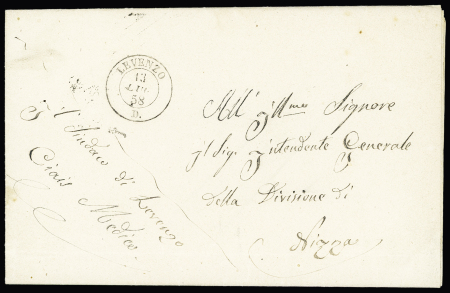 LEVENZO
13
58
D.
All' Ill.mo Signore
Il Sig. Intendente Generale
della Divisione di
Nizza
Il Sindaco di Levenzo
Ciais Medico